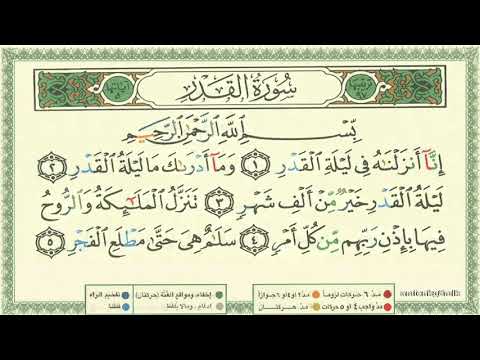 سُورَةُ القَدْرِ
بِسْمِ ٱللَّهِ ٱلرَّحْمَٰنِ ٱلرَّحِيمِ
إِنَّآ أَنزَلْنَٰهُ فِى لَيْلَةِ ٱلْقَدْرِ ١ وَمَآ أَدْرَىٰكَ مَا لَيْلَةُ ٱلْقَدْرِ ٢
لَيْلَةُ ٱلْقَدْرِ خَيْرٌ مِّنْ أَلْفِ شَهْرٍ ٣ تَنَزَّلُ ٱلْمَلَٰٓئِكَةُ وَٱلرُّوحُ
فِيهَا بِإِذْنِ رَبِّهِم مِّن كُلِّ أَمْرٍ ٤ سَلَٰمٌ هِىَ حَتَّىٰ مَطْلَعِ ٱلْفَجْرِ ٥
مدّ ٦ حركات لزوماً مدّ ٢ او ٤ او ٦ جوازاً إخفاء، ومواقع الغُنَّة (حركتان) تفخيم الراء
مدّ واجب ٤ او ٥ حركات مدّ حركتان إدغام، وما لا يُلفَظ قلقلة